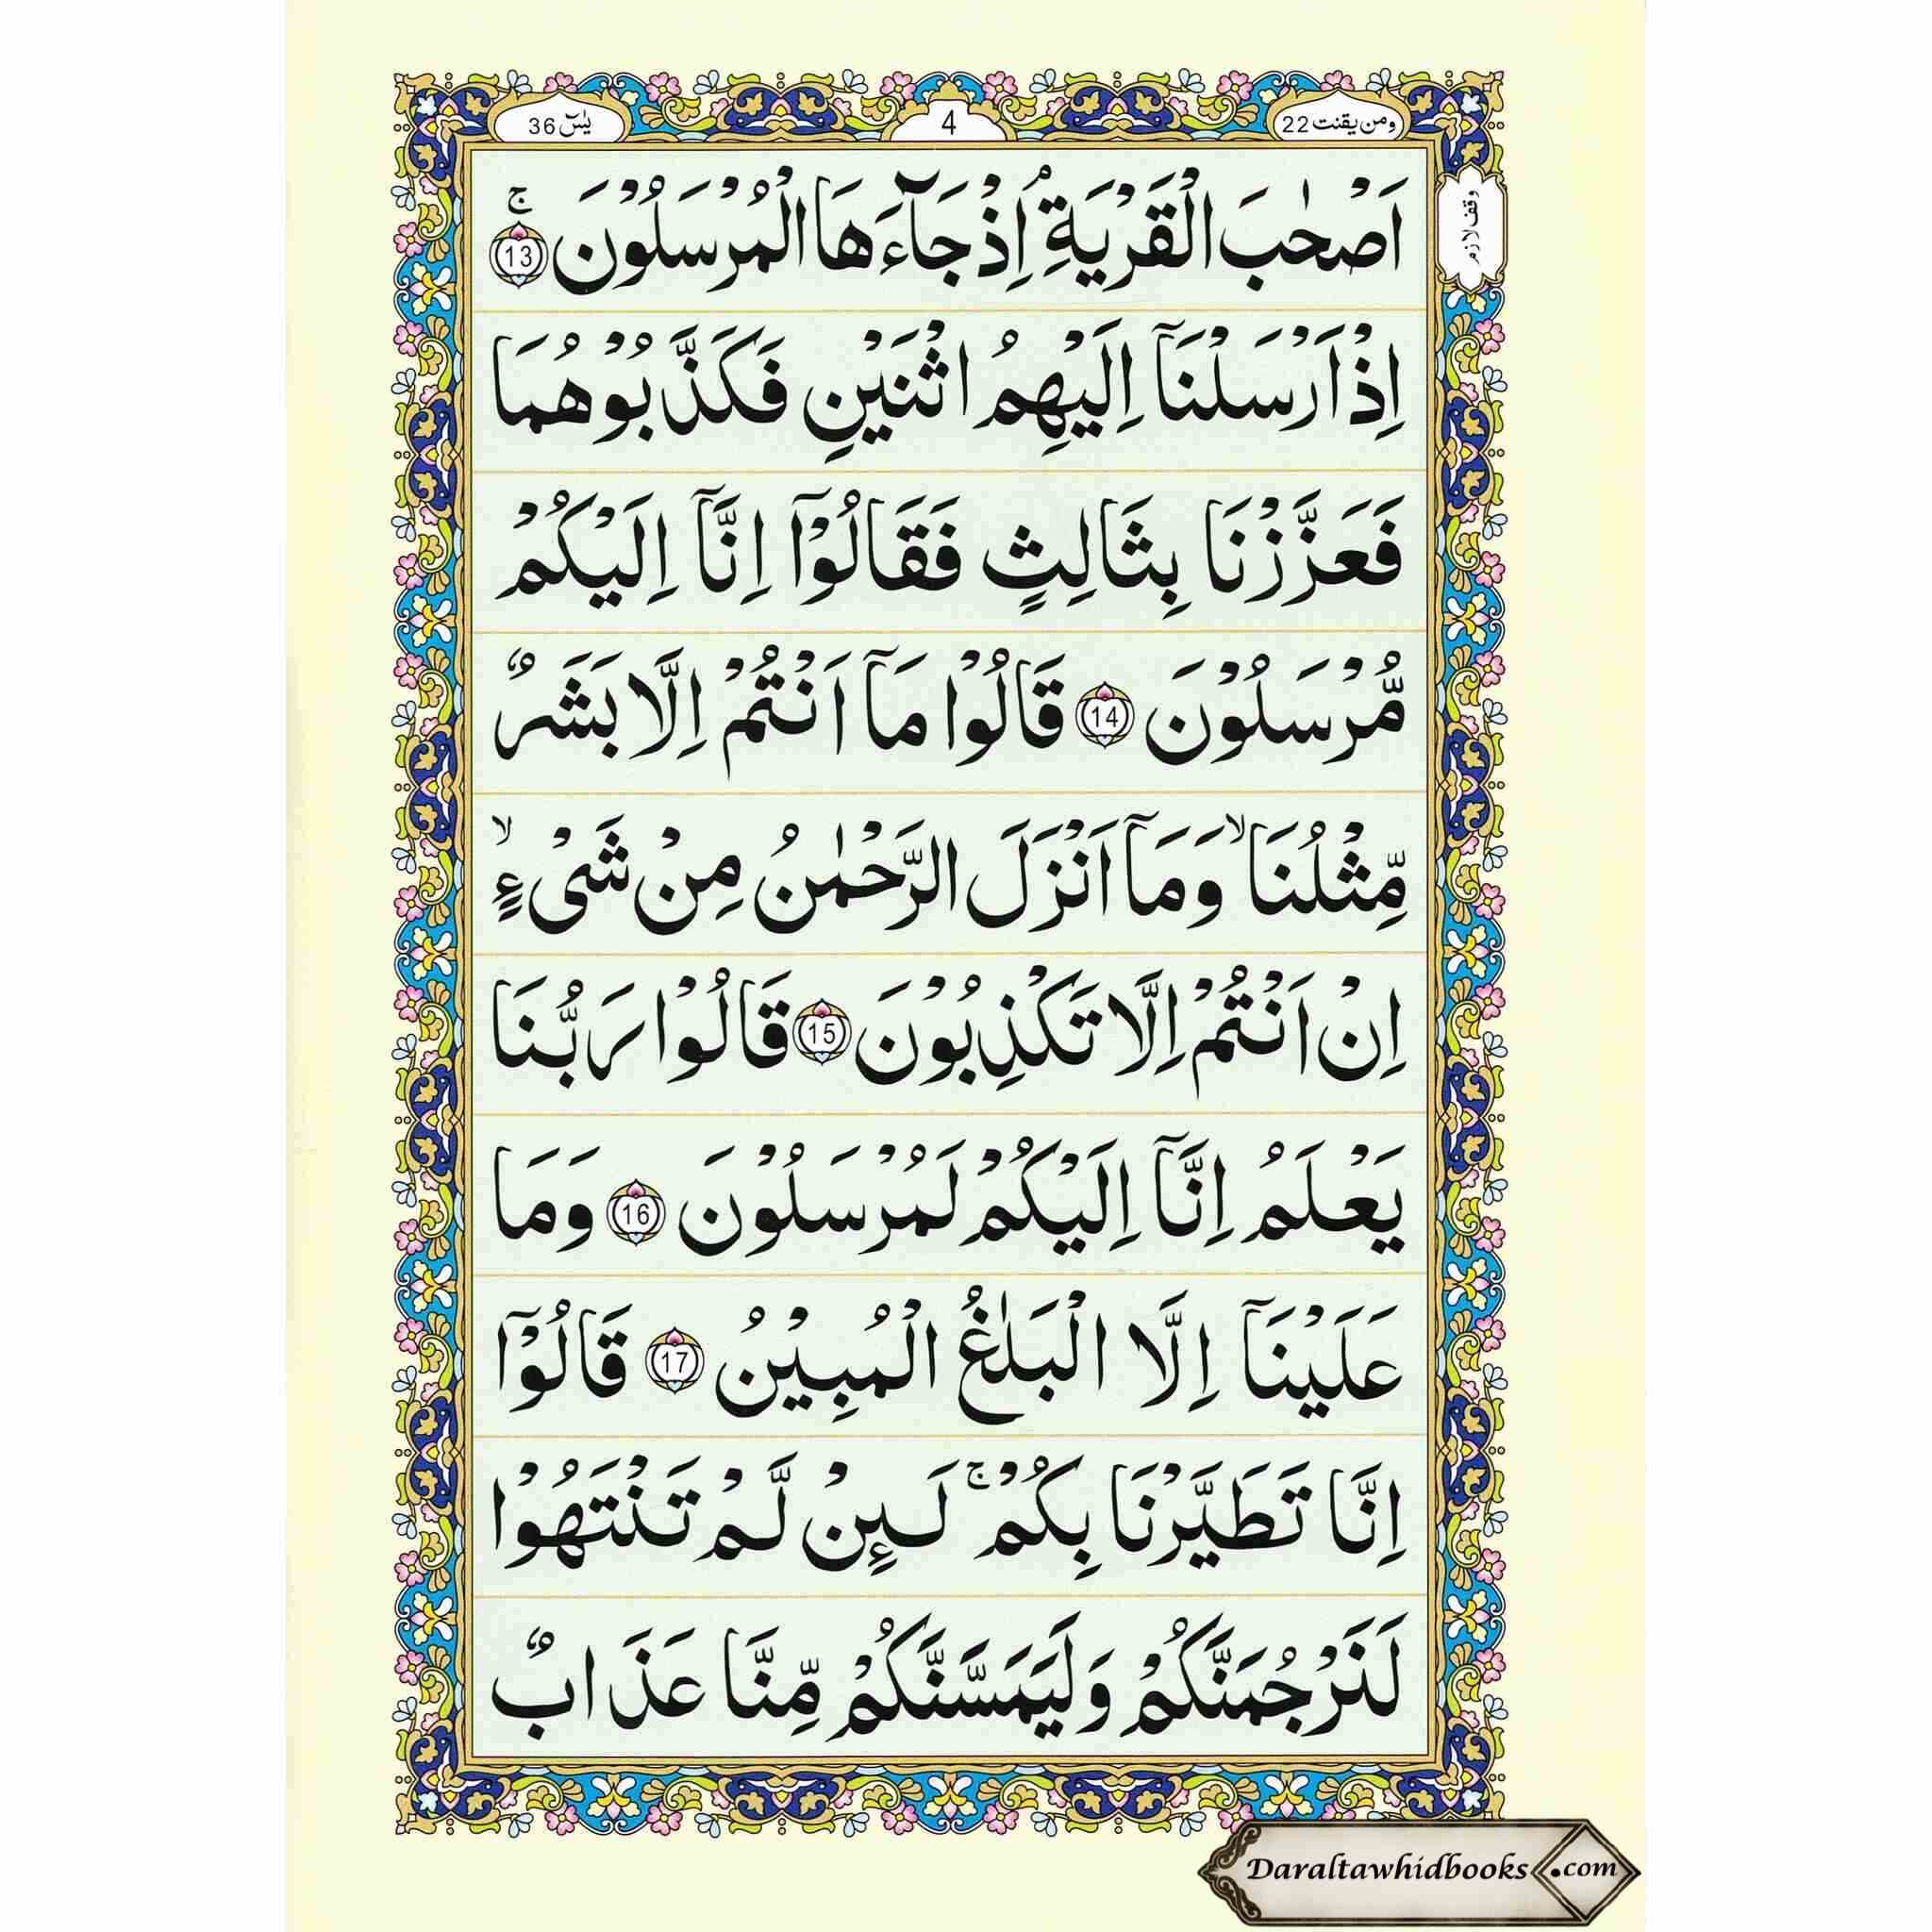 یٰسٓ 36
4
ومن یقنت 22
وقف لازم
اَصْحٰبَ الْقَرْیَةِ ۘ اِذْ جَآءَهَا الْمُرْسَلُوْنَ ۚ 13
اِذْ اَرْسَلْنَاۤ اِلَیْهِمُ اثْنَیْنِ فَكَذَّبُوْهُمَا
فَعَزَّزْنَا بِثَالِثٍ فَقَالُوْۤا اِنَّاۤ اِلَیْكُمْ
مُّرْسَلُوْنَ 14 قَالُوْا مَاۤ اَنْتُمْ اِلَّا بَشَرٌ
مِّثْلُنَا ۙ وَمَاۤ اَنْزَلَ الرَّحْمٰنُ مِنْ شَیْءٍ ۙ
اِنْ اَنْتُمْ اِلَّا تَكْذِبُوْنَ 15 قَالُوْا رَبُّنَا
یَعْلَمُ اِنَّاۤ اِلَیْكُمْ لَمُرْسَلُوْنَ 16 وَمَا
عَلَیْنَاۤ اِلَّا الْبَلٰغُ الْمُبِیْنُ 17 قَالُوْۤا
اِنَّا تَطَیَّرْنَا بِكُمْ ۚ لَىِٕنْ لَّمْ تَنْتَهُوْا
لَنَرْجُمَنَّكُمْ وَلَیَمَسَّنَّكُمْ مِّنَّا عَذَابٌ
Daraltawhidbooks.com